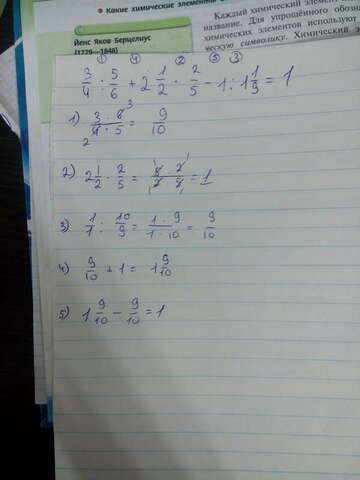 Какие химические элементы
Йенс Яков Берцелиус
(1779—1848)
Каждый химический элемент
название. Для упрощённого обозн
химических элементов используют
ческую символику. Химический э
① ④ ② ⑤ ③
3/4 : 5/6 + 2 1/2 · 2/5 - 1 : 1 1/9 = 1
1) 3 · 6 3 / 4 · 5 2 = 9/10
2) 2 1/2 · 2/5 = 5 1 · 2 1 / 2 1 · 5 1 = 1
3) 1/1 : 10/9 = 1 · 9 / 1 · 10 = 9/10
4) 9/10 + 1 = 1 9/10
5) 1 9/10 - 9/10 = 1